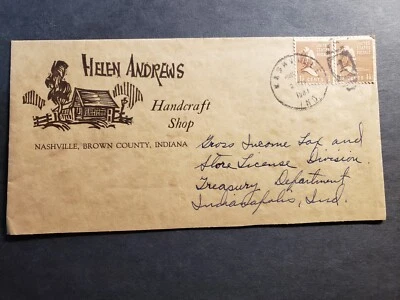 HELEN ANDREWS
Handcraft
Shop
NASHVILLE, BROWN COUNTY, INDIANA
NASHVILLE
IND.
Gross Income Tax and
Store License Division.
Treasury Department
Indianapolis, Ind.